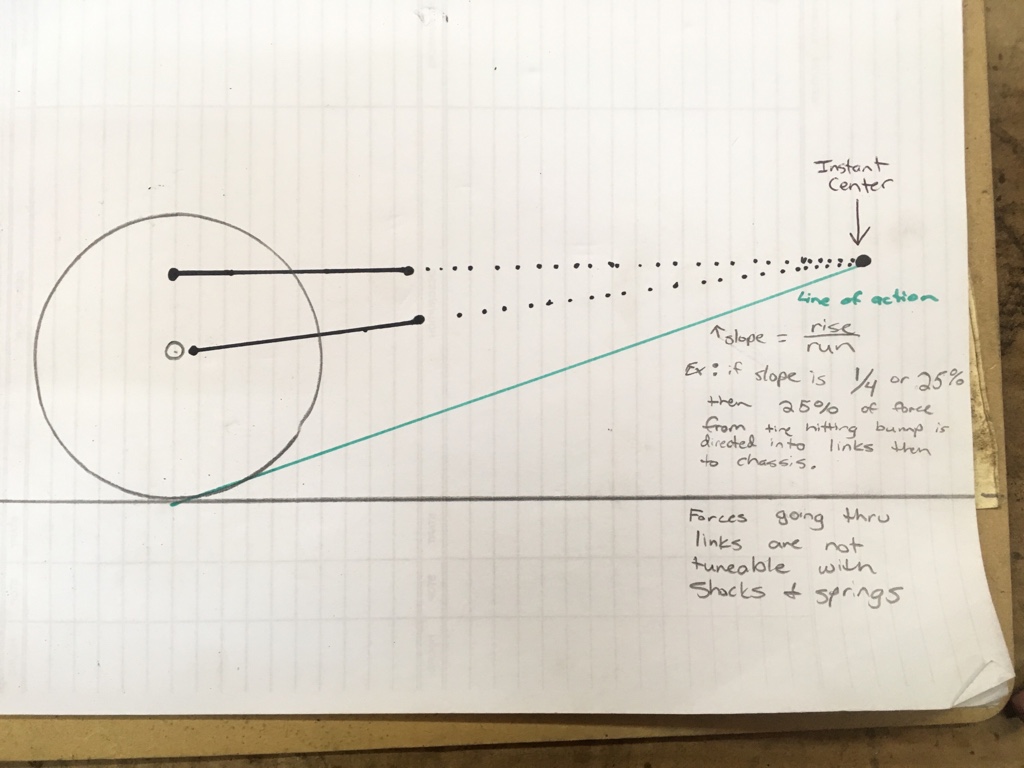 Instant
Center
Line of action
↑ slope = rise
run
Ex: if slope is 1/4 or 25%
then 25% of force
from tire hitting bump is
directed into links then
to chassis.
Forces going thru
links are not
tuneable with
Shocks & springs